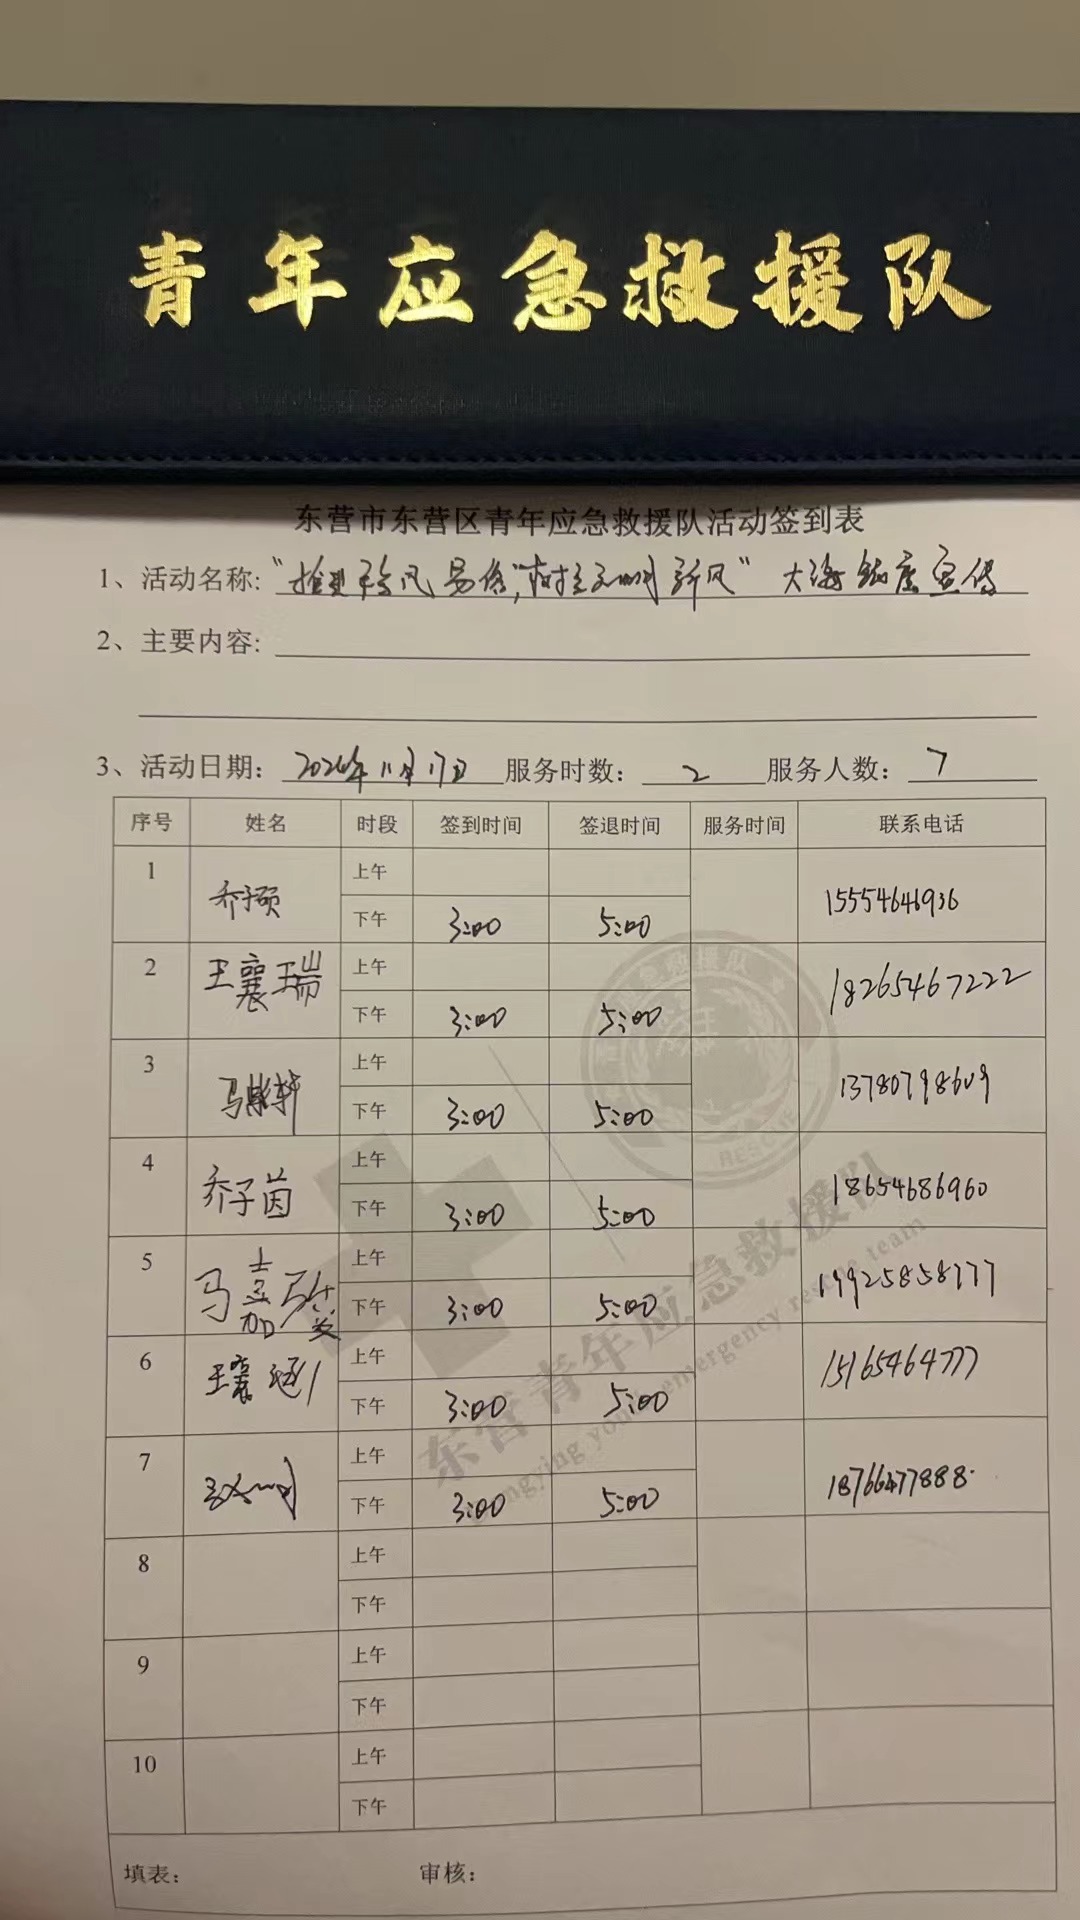 青年应急救援队
东营市东营区青年应急救援队活动签到表
1、活动名称: "推进移风易俗,树立文明新风" 大海 宣传
2、主要内容:
3、活动日期: 2024年11月17日 服务时数: 2 服务人数: 7
序号 姓名 时段 签到时间 签退时间 服务时间 联系电话
1 乔子硕 上午
下午 3:00 5:00 15554646936
2 王襄瑞 上午
下午 3:00 5:00 18265467222
3 上午
下午 3:00 5:00 13780798609
4 乔子茵 上午
下午 3:00 5:00 18654686960
5 马嘉 上午
下午 3:00 5:00 19925858777
6 王襄涵 上午
下午 3:00 5:00 15165464777
7 上午
下午 3:00 5:00 18766477888
8 上午
下午
9 上午
下午
10 上午
下午
填表: 审核:
RESCUE
东营青年应急救援队
Dongying youth emergency rescue team